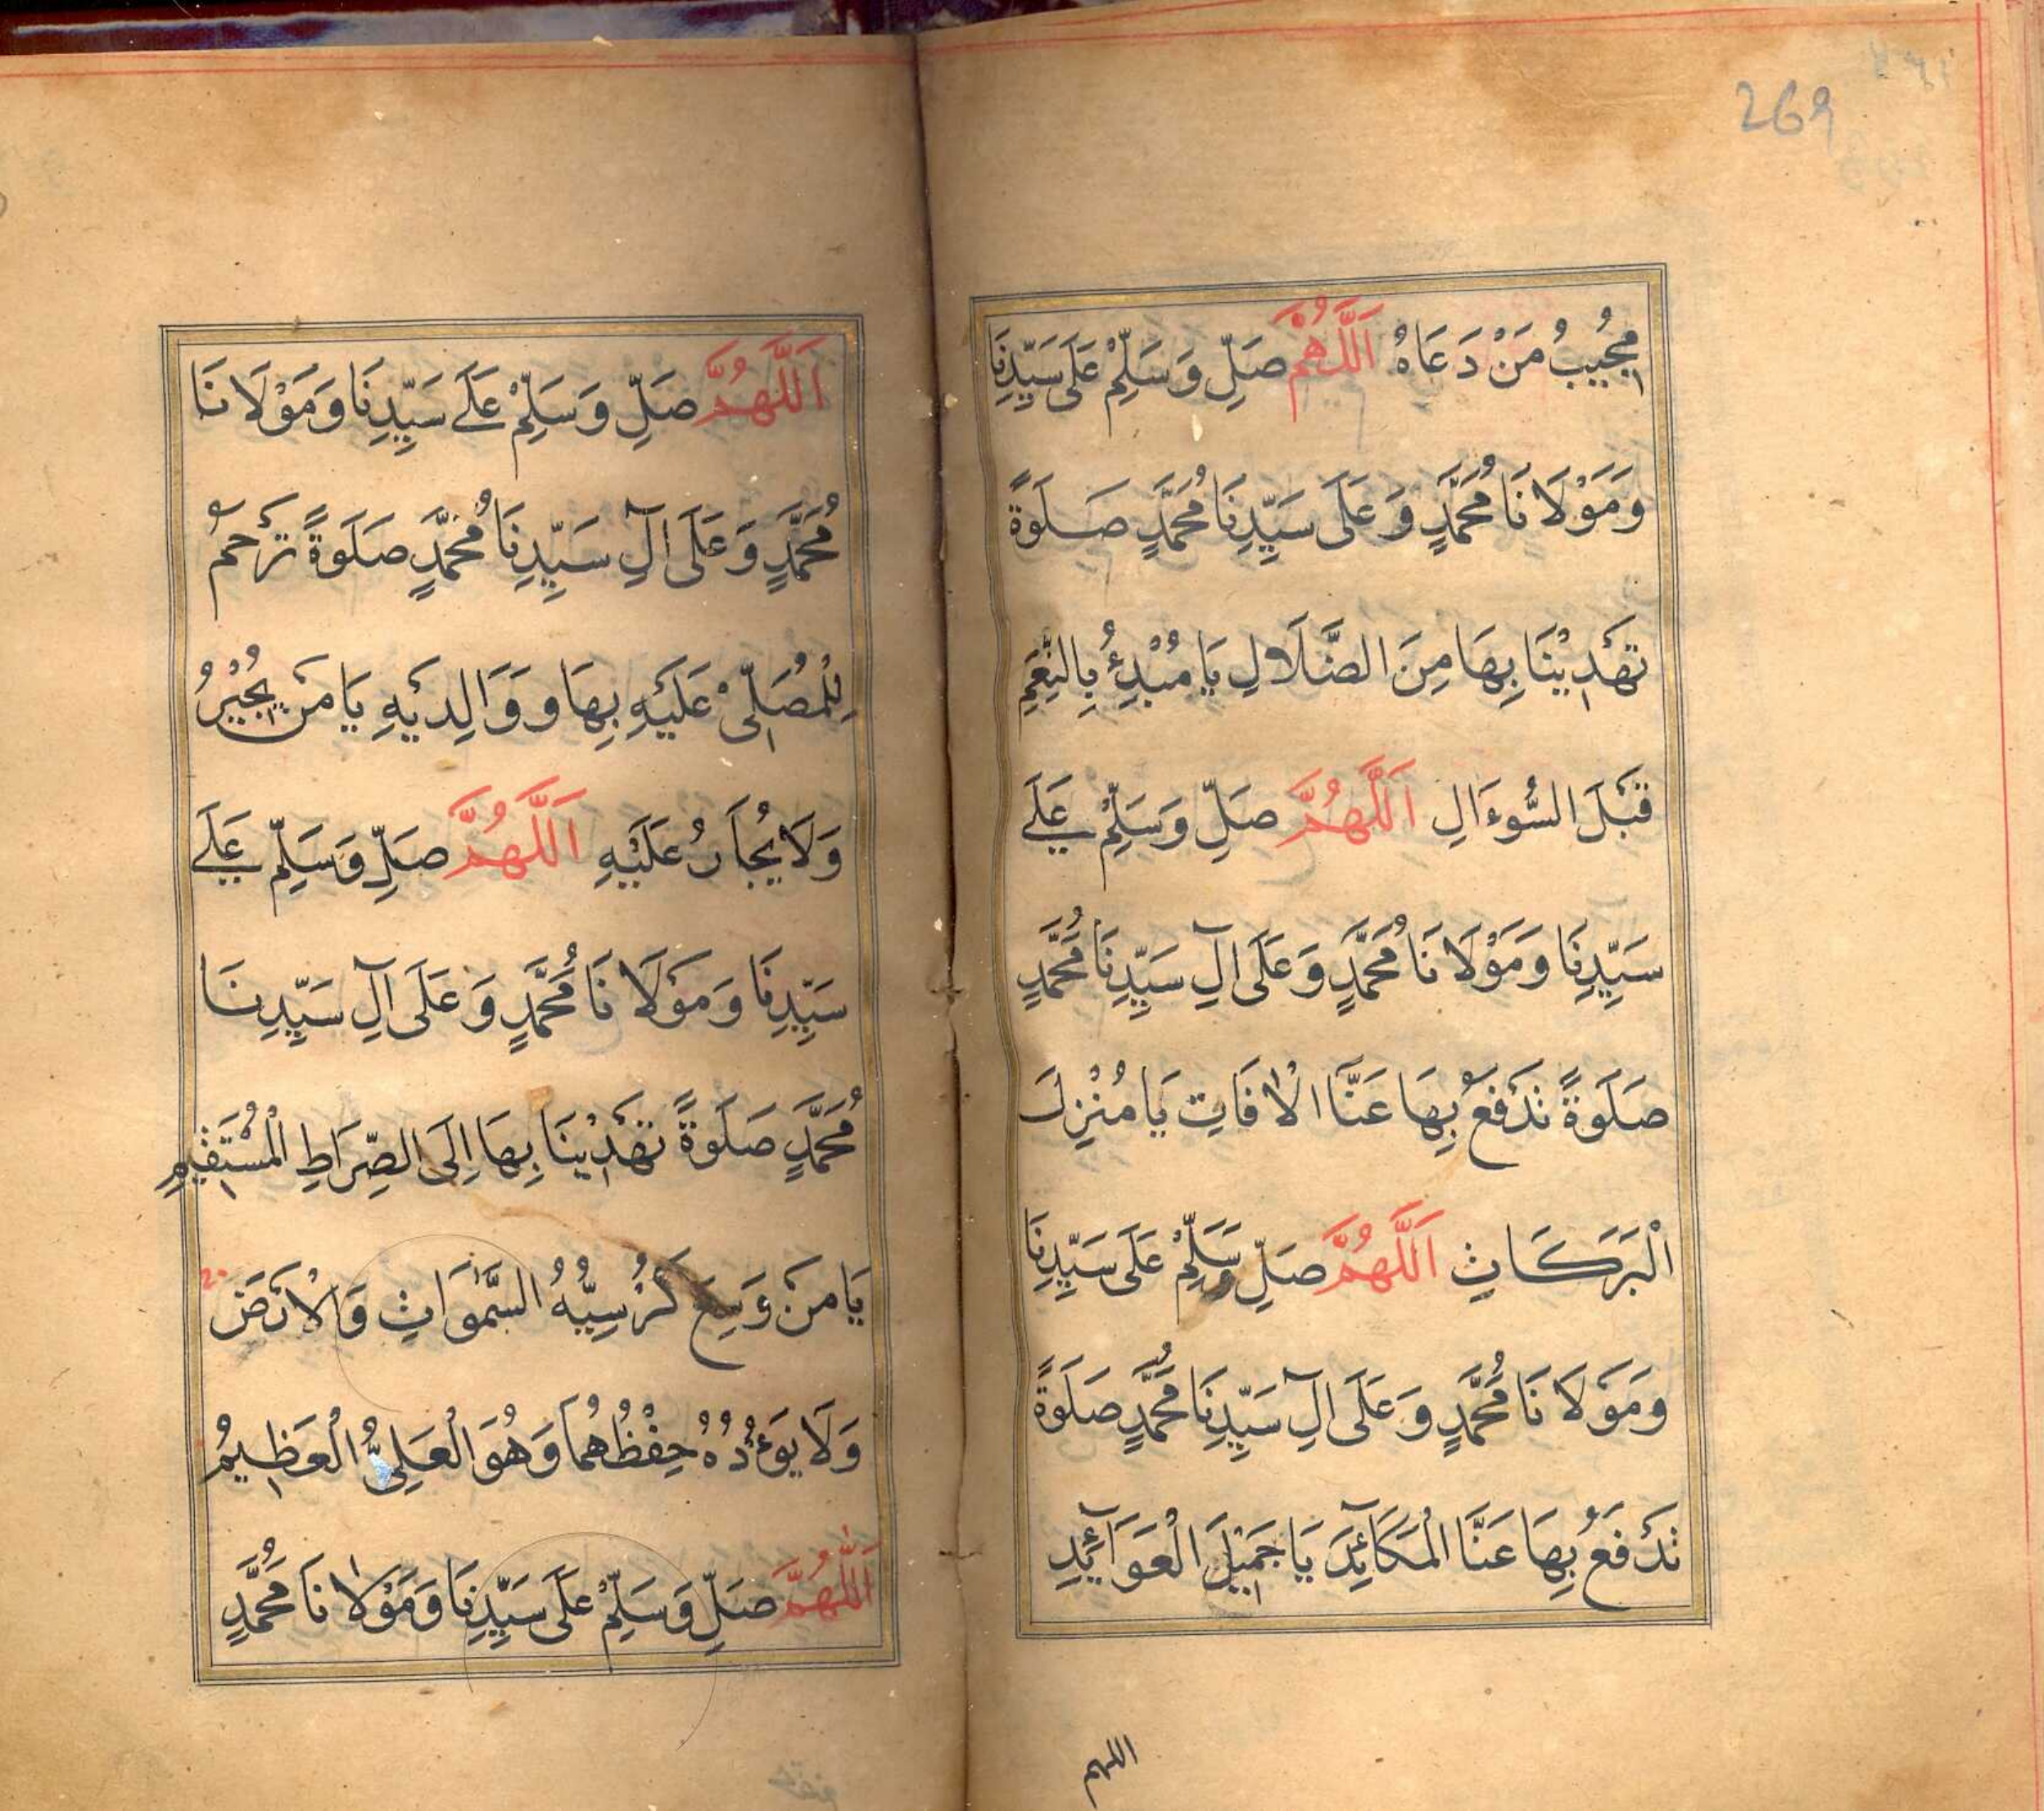 269
مُجِيبُ مَنْ دَعَاهُ اَللّٰهُمَّ صَلِّ وَسَلِّمْ عَلَى سَيِّدِنَا
وَمَوْلَانَا مُحَمَّدٍ وَعَلَى سَيِّدِنَا مُحَمَّدٍ صَلَوةً
تَهْدِيْنَا بِهَا مِنَ الضَّلَالِ يَا مُبْدِئُ بِالنِّعَمِ
قَبْلَ السُّوءَالِ اَللَّهُمَّ صَلِّ وَسَلِّمْ عَلَے
سَيِّدِنَا وَمَوْلَانَا مُحَمَّدٍ وَعَلَى آلِ سَيِّدِنَا مُحَمَّدٍ
صَلَوةً تَدْفَعُ بِهَا عَنَّا الْاٰفَاتِ يَا مُنْزِلَ
الْبَرَكَاتِ اَللَّهُمَّ صَلِّ وَسَلِّمْ عَلَى سَيِّدِنَا
وَمَوْلَانَا مُحَمَّدٍ وَعَلَى آلِ سَيِّدِنَا مُحَمَّدٍ صَلَوةً
تَدْفَعُ بِهَا عَنَّا الْمَكَآئِدَ يَا جَمِيْلَ الْعَوَآئِدِ
اللهم
اَللَّهُمَّ صَلِّ وَسَلِّمْ عَلَے سَيِّدِنَا وَمَوْلَانَا
مُحَمَّدٍ وَعَلَى آلِ سَيِّدِنَا مُحَمَّدٍ صَلَوةً تَرْحَمُ
لِلْمُصَلِّيْ عَلَيْهِ بِهَا وَوَالِدَيْهِ يَا مَنْ يُجْيْرُ
وَلَا يُجَارُ عَلَيْهِ اَللَّهُمَّ صَلِّ وَسَلِّمْ عَلَے
سَيِّدِنَا وَمَوْلَانَا مُحَمَّدٍ وَعَلَى آلِ سَيِّدِنَا
مُحَمَّدٍ صَلَوةً تَهْدِيْنَا بِهَا اِلَى الصِّرَاطِ الْمُسْتَقِيْمِ
يَا مَنْ وَسِعَ كُرْسِيُّهُ السَّمٰوَاتِ وَالْاَرْضَ
وَلَا يَوءُدُهُ حِفْظُهُمَا وَهُوَ الْعَلِيُّ الْعَظِيمُ
اَللّٰهُمَّ صَلِّ وَسَلِّمْ عَلَى سَيِّدِنَا وَمَوْلَانَا مُحَمَّدٍ